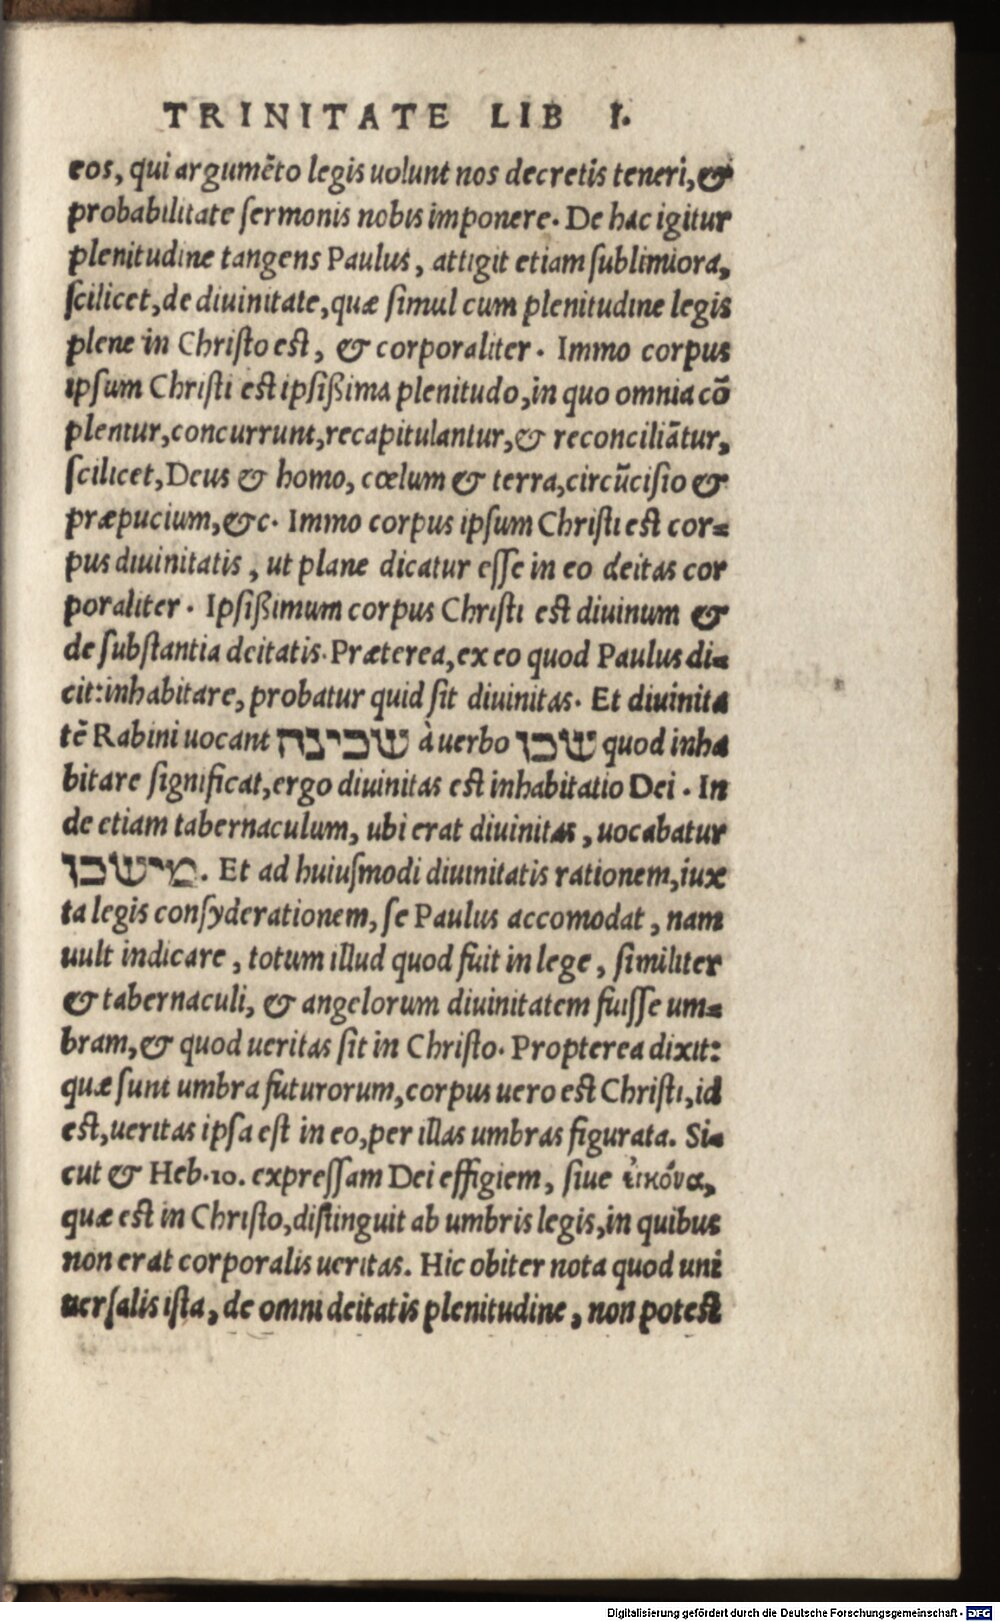 TRINITATE LIB I.
eos, qui argumẽto legis uolunt nos decretis teneri, &
probabilitate sermonis nobis imponere. De hac igitur
plenitudine tangens Paulus, attigit etiam sublimiora,
scilicet, de diuinitate, quæ simul cum plenitudine legis
plene in Christo est, & corporaliter. Immo corpus
ipsum Christi est ipsißima plenitudo, in quo omnia cõ
plentur, concurrunt, recapitulantur, & reconciliãtur,
scilicet, Deus & homo, cœlum & terra, circũcisio &
præpucium, &c. Immo corpus ipsum Christi est cor-
pus diuinitatis, ut plane dicatur esse in eo deitas cor
poraliter. Ipsißimum corpus Christi est diuinum &
de substantia deitatis. Præterea, ex eo quod Paulus di-
cit: inhabitare, probatur quid sit diuinitas. Et diuinita
tẽ Rabini uocant שכינה à uerbo שכן quod inha
bitare significat, ergo diuinitas est inhabitatio Dei. In
de etiam tabernaculum, ubi erat diuinitas, uocabatur
מישכן. Et ad huiusmodi diuinitatis rationem, iux
ta legis consyderationem, se Paulus accomodat, nam
uult indicare, totum illud quod fuit in lege, similiter
& tabernaculi, & angelorum diuinitatem fuisse um-
bram, & quod ueritas sit in Christo. Propterea dixit:
quæ sunt umbra futurorum, corpus uero est Christi, id
est, ueritas ipsa est in eo, per illas umbras figurata. Si-
cut & Heb. 10. expressam Dei effigiem, siue ἰικόνα,
quæ est in Christo, distinguit ab umbris legis, in quibus
non erat corporalis ueritas. Hic obiter nota quod uni
uersalis ista, de omni deitatis plenitudine, non potest
Digitalisierung gefördert durch die Deutsche Forschungsgemeinschaft - DFG